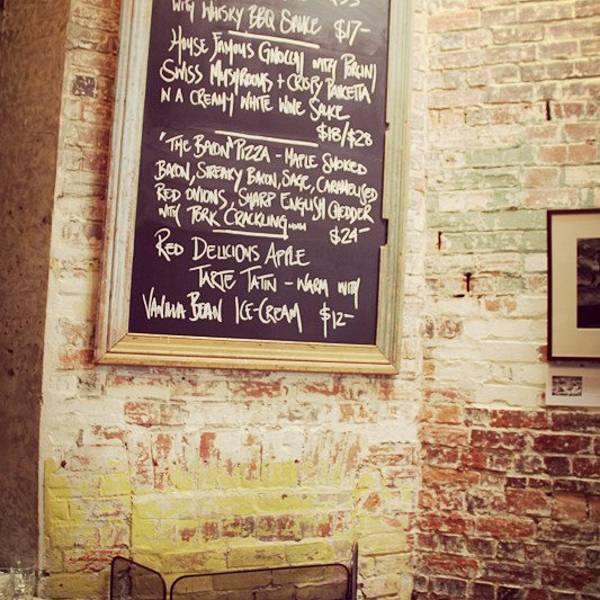 WITH WHISKY BBQ SAUCE $17-
HOUSE FAMOUS GNOCCHI WITH PORCINI
SWISS MUSHROOMS + CRISPY PANCETTA
IN A CREAMY WHITE WINE SAUCE
$18/$28
"THE BACON" PIZZA - MAPLE SMOKED
BACON, STREAKY BACON, SAGE, CARAMELISED
RED ONIONS, SHARP ENGLISH CHEDDER
WITH PORK CRACKLING $24-
RED DELICIOUS APPLE
TARTE TATIN - WARM WITH
VANILLA BEAN ICE-CREAM $12-